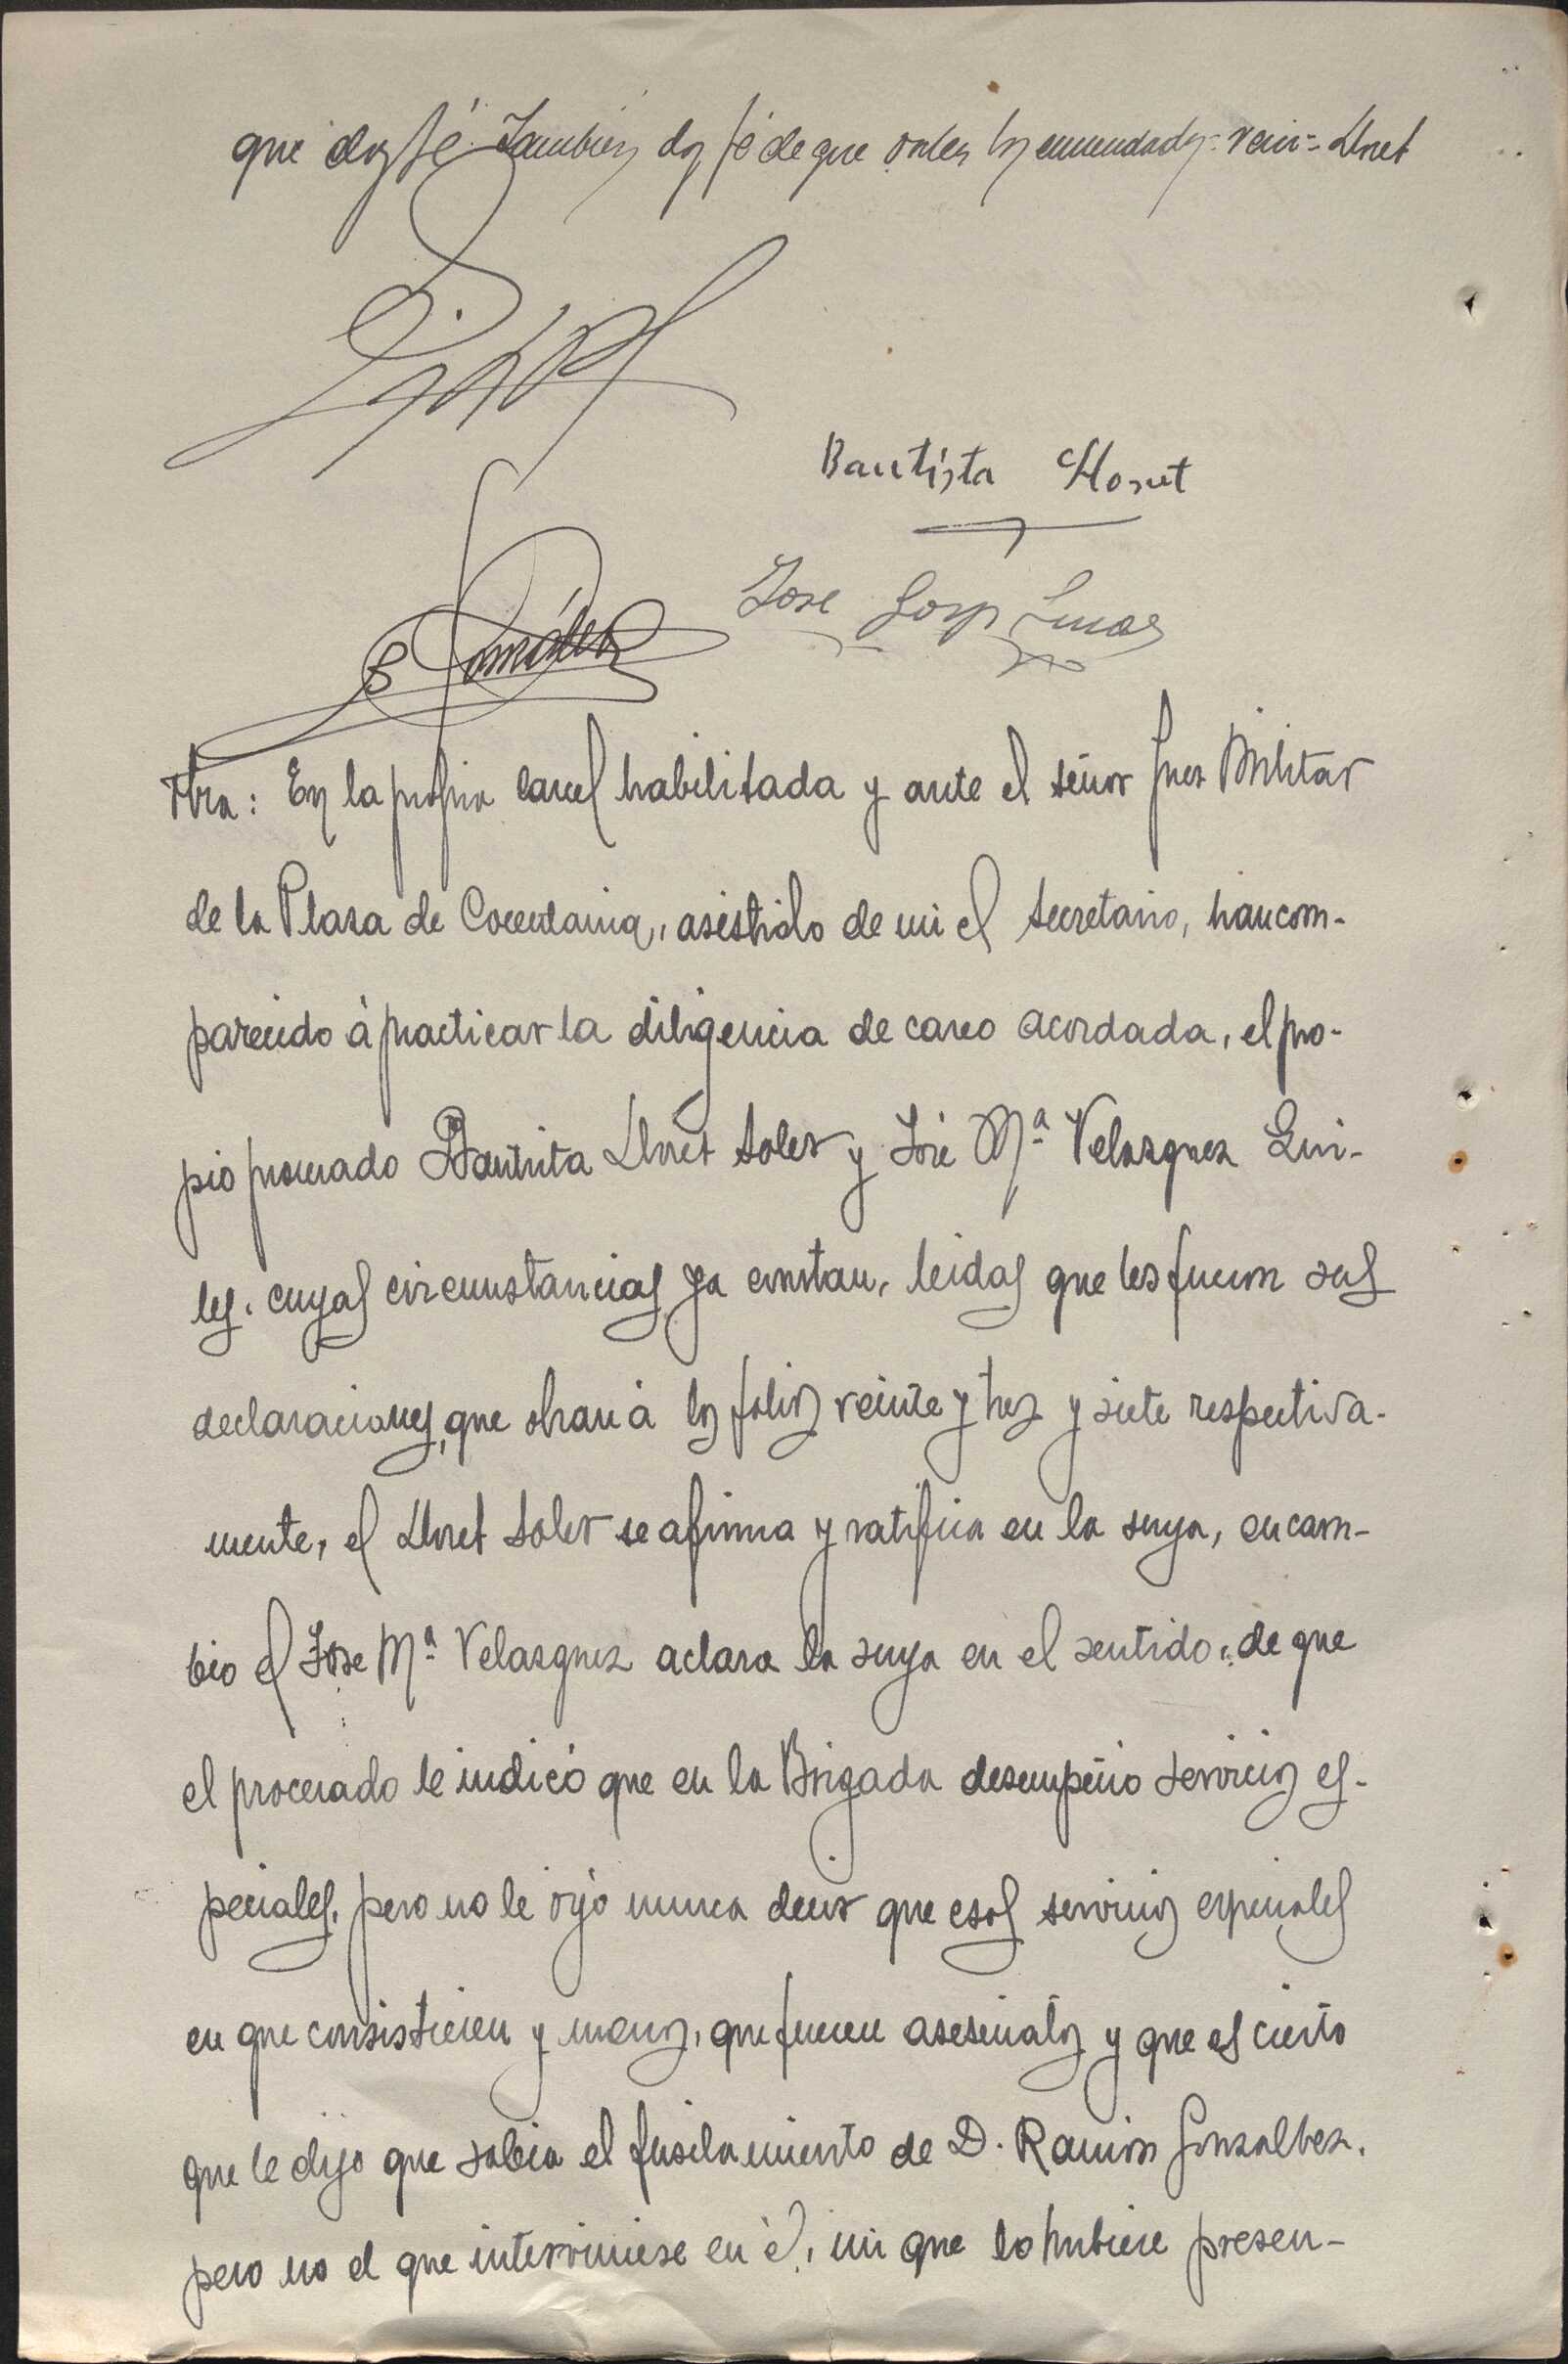 que doy fé. Tambien doy fé de que valen los enmendados= vein= Lloret
Bautista Lloret
Jose Gosp
B González
Otra: En la propia carcel habilitada y ante el señor Juez Militar
de la Plaza de Cocentaina, asistido de mi el secretario, han com-
parecido á practicar la diligencia de careo acordada, el pro-
pio procesado Bautista Lloret Soler y José Mª Velazquez Qui-
les, cuyas circunstancias ya constan, leidas que les fueron sus
declaraciones, que obran á los folios veinte y tres y siete respectiva-
mente, el Lloret Soler se afirma y ratifica en la suya, en cam-
bio el Jose Mª Velazquez aclara la suya en el sentido, de que
el procesado le indicó que en la Brigada desempeñó servicios es-
peciales, pero no le oyó nunca decir que esos servicios especiales
en que consistiesen y menos, que fuesen asesinatos y que es cierto
que le dijo que sabia el fusilamiento de D. Ramón Gonzalbez,
pero no el que interviniese en él, ni que lo hubiere presen-